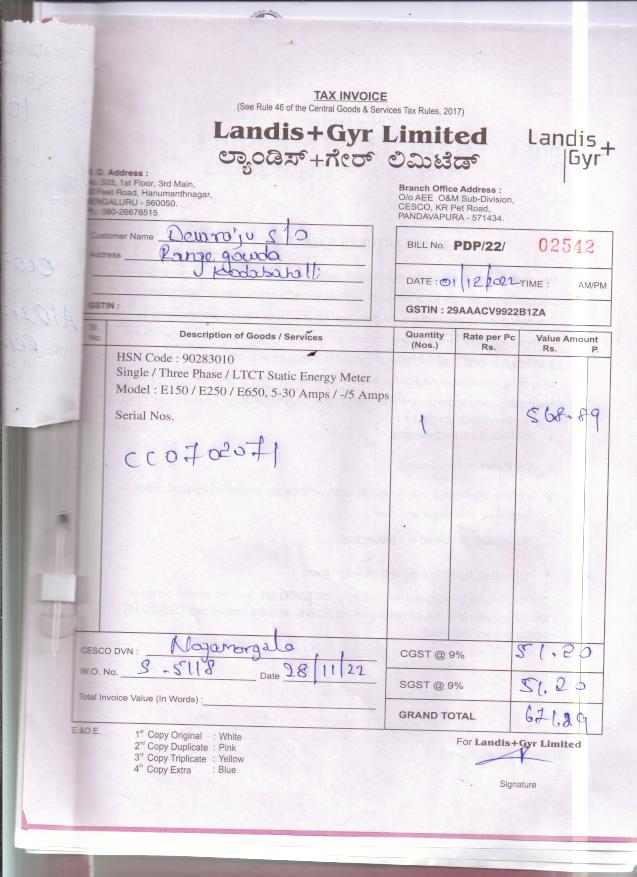 TAX INVOICE
(See Rule 46 of the Central Goods & Services Tax Rules, 2017)
Landis+Gyr Limited
ಲ್ಯಾಂಡಿಸ್+ಗೇರ್ ಲಿಮಿಟೆಡ್
Landis+
Gyr
Address :
503, 1st Floor, 3rd Main,
Feet Road, Hanumanthnagar,
BENGALURU - 560050.
080-26678515
Branch Office Address :
O/o AEE O&M Sub-Division,
CESCO, KR Pet Road,
PANDAVAPURA - 571434.
Customer Name Devaraju S/o
Address Range gowda
Kodabahalli
GSTIN :
BILL No. PDP/22/ 02542
DATE : 01/12/2022 TIME : AM/PM
GSTIN : 29AAACV9922B1ZA
Sl. No. Description of Goods / Services Quantity (Nos.) Rate per Pc Rs. Value Amount Rs. P.
HSN Code : 90283010
Single / Three Phase / LTCT Static Energy Meter
Model : E150 / E250 / E650, 5-30 Amps / -/5 Amps
Serial Nos. 1 568.89
CC0702071
CESCO DVN : Nagamangala
W.O. No. S-5118 Date 28/11/22
Total Invoice Value (In Words) :
CGST @ 9% 51.20
SGST @ 9% 51.20
GRAND TOTAL 671.29
E.&O.E.
1st Copy Original : White
2nd Copy Duplicate : Pink
3rd Copy Triplicate : Yellow
4th Copy Extra : Blue
For Landis+Gyr Limited
Signature